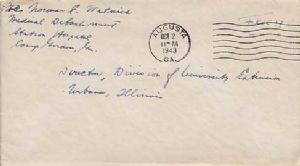 Norman F. Watrick
Medical Detachment
Station Hospital
Camp Gordon, Ga.
AUGUSTA
OCT 2
11 30 PM
1943
GA.
Director, Division of University Extension
Urbana, Illinois